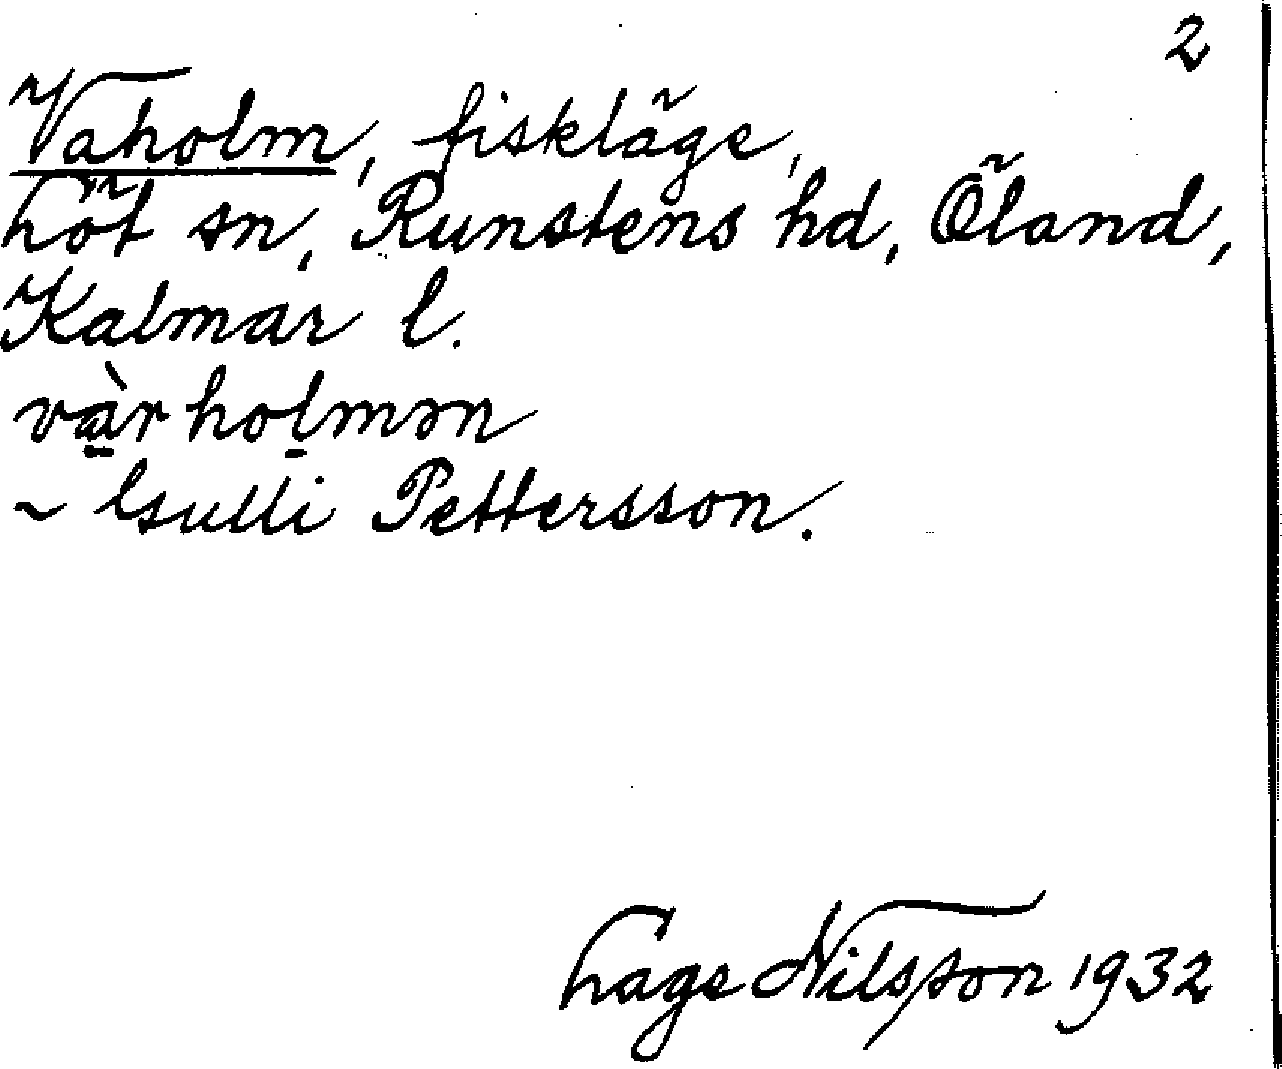 2
Vaholm, fiskläge,
Löt sn, Runstens hd, Öland,
Kalmar l.
vàr holmən
~ Gulli Pettersson.
Hage Nilsson 1932